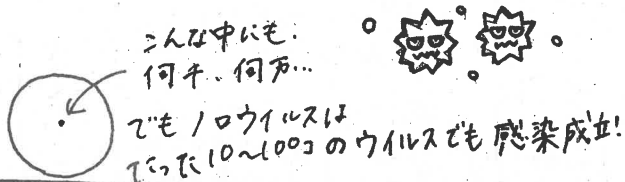 こんな中にも.
何千、何万…
でもノロウイルスは
たった10〜100コのウイルスでも感染成立!